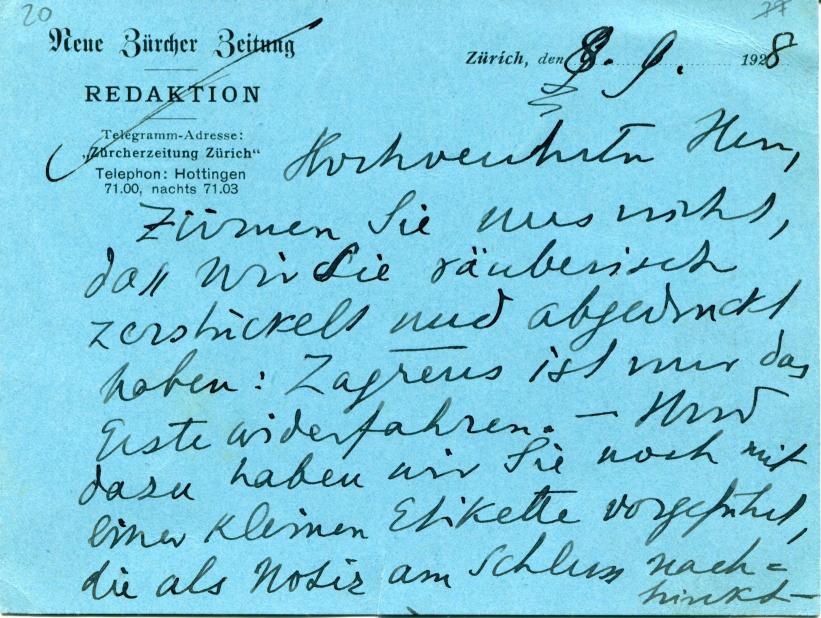 20
Neue Zürcher Zeitung
REDAKTION
Telegramm-Adresse:
„Zürcherzeitung Zürich“
Telephon: Hottingen
71.00, nachts 71.03
Zürich, den 8. 9. 1928
Hochverehrter Herr,
Zürnen Sie uns nicht,
daß wir Sie räuberisch
zerstückelt und abgedruckt
haben: Zagreus ist nur das
Erste widerfahren. — Und
dazu haben wir Sie noch mit
einer kleinen Etikette vorgeführt,
die als Notiz am Schluss nach=
hinkt —